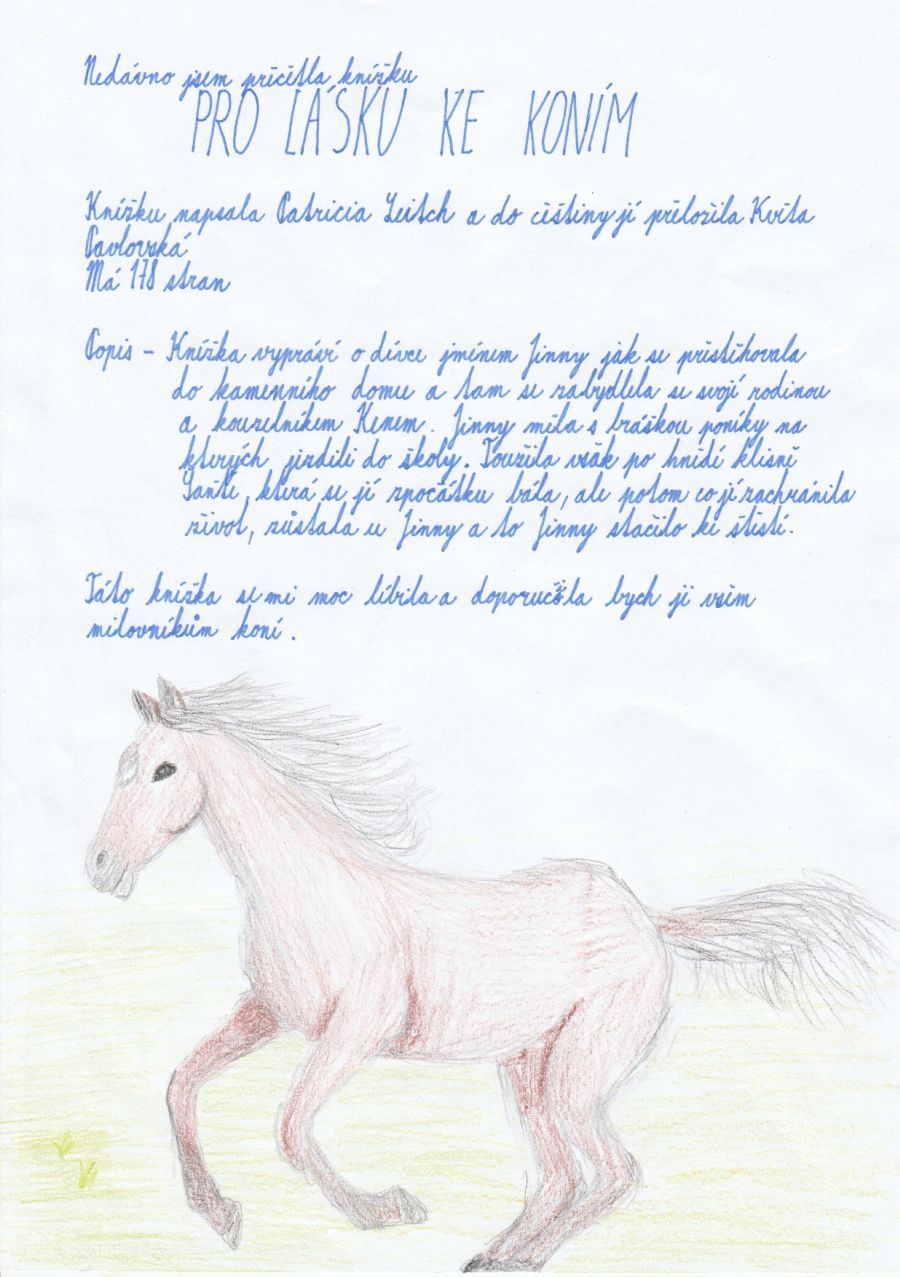 Nedávno jsem přečetla knížku
PRO LÁSKU KE KONÍM
Knížku napsala Patricia Leitch a do češtiny jí přeložila Květa
Pavlovská
Má 178 stran
Popis - Knížka vypráví o dívce jménem Jinny jak se přistěhovala
do kamenného domu a tam se zabydlela se svojí rodinou
a kouzelníkem Kenem. Jinny měla s bráškou poníky na
kterých jezdili do školy. Toužila však po hnědé klisně
Šantě, která se jí zpočátku bála, ale potom co jí zachránila
život, zůstala u Jinny a to Jinny stačilo ke štěstí.
Táto knížka se mi moc líbila a doporučila bych ji všem
milovníkům koní.